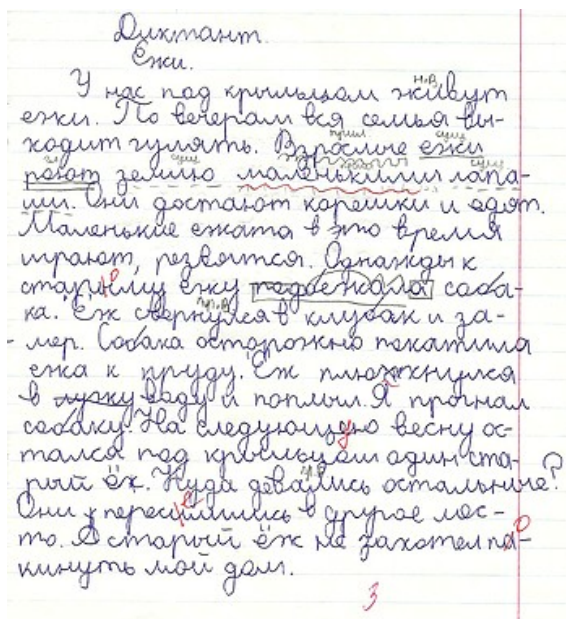 Диктант.
Ежи.
У нас под крыльцом живут
ежи. По вечерам вся семья вы-
ходит гулять. Взрослые ежи
роют землю маленькими лапа-
ми. Они достают корешки и едят.
Маленькие ежата в это время
играют, резвятся. Однажды к
старыму ежу подбежала соба-
ка. Ёж свернулся в клубок и за-
мер. Собака осторожно покатила
ежа к пруду. Ёж плюхкнулся
в воду и поплыл. Я прогнал
собаку. На следующую весну ос-
тался под крыльцом один ста-
рый ёж. Куда девались остальные?
Они переселились в другое мес-
то. А старый ёж не захотел па-
кинуть мой дом.
3